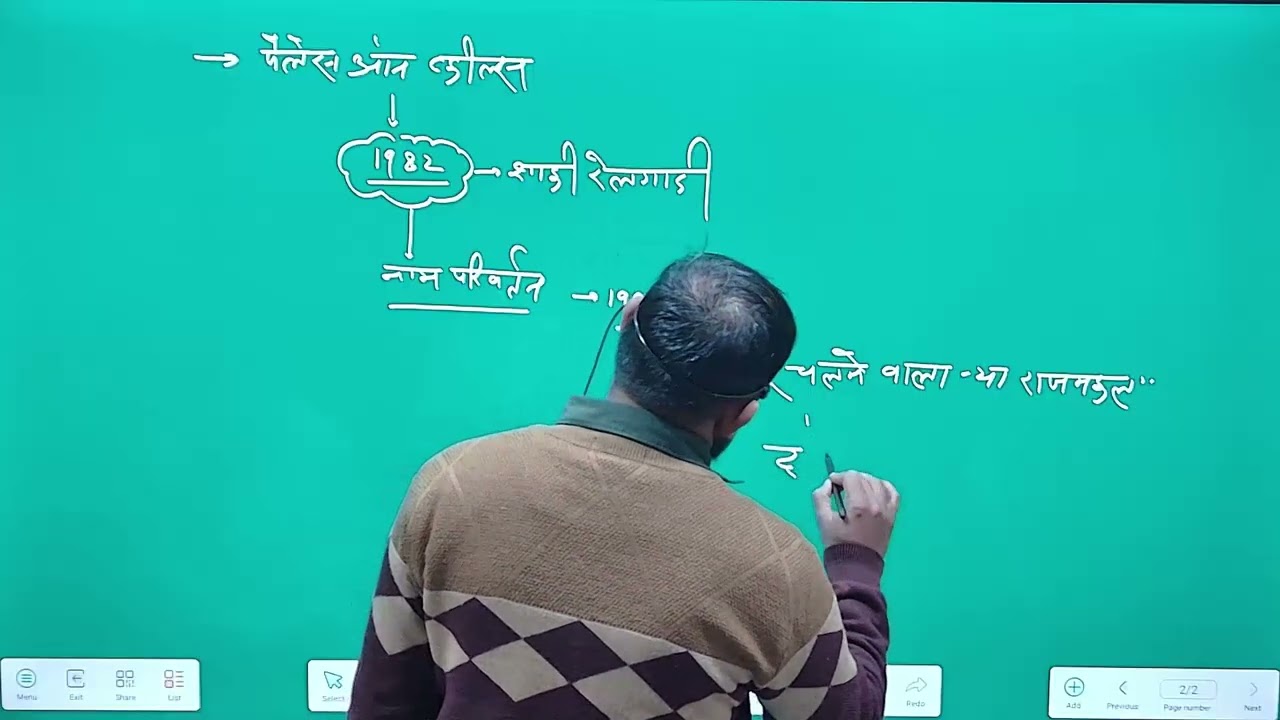 → पैलेस ऑन व्हील्स
1982 → शाही रेलगाडी
नाम परिवर्तन → 19
चलने वाला
Menu Exit Share List Select Redo Add Previous 2/2 Page number Next